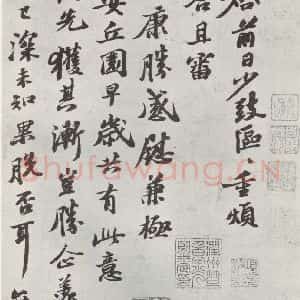 啓前日少致區區重煩
答且審
康勝感慰兼極
安丘園早歲共有此意
先獲其漸豈勝企羨
已深未知果脫否耳
Shufawang.CN